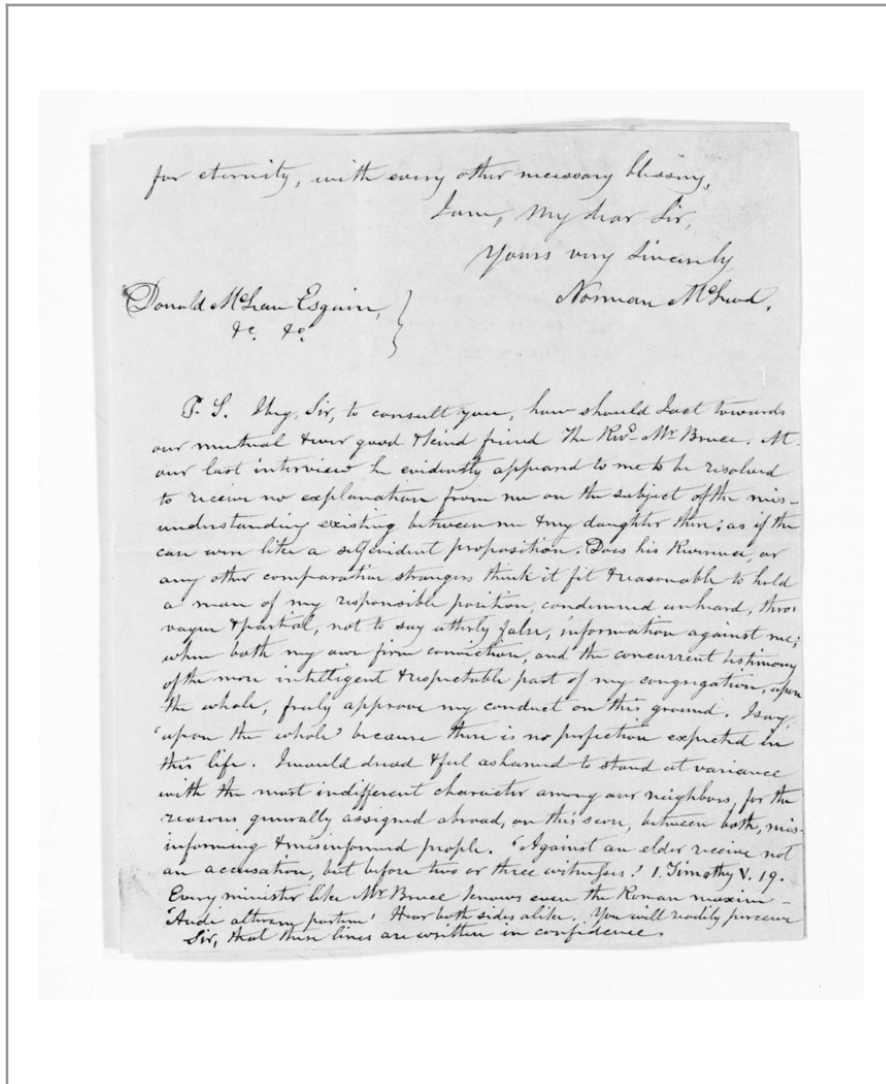 for eternity, with every other necessary blessing,
I am, My dear Sir,
Yours very Sincerely
Norman McLeod.
Donald McLean Esquire,
&c. &c.
P. S. I beg, Sir, to consult you, how should I act towards
our mutual & our good & kind friend The Revd. Mr Bruce. At
our last interview he evidently appeared to me to be resolved
to receive no explanation from me on the subject of the mis-
understanding existing between me & my daughter then: as if the
case were like a selfevident proposition. Does his Reverence, or
any other comparative strangers think it fit & reasonable to hold
a man of my responsible position, condemned unheard, thro'
vague & partial, not to say utterly false, information against me;
when both my own firm conviction, and the concurrent testimony
of the more intelligent & respectable part of my congregation, upon
the whole, freely approve my conduct on this ground. I say,
'upon the whole' because there is no perfection expected in
this life. I would dread & feel ashamed to stand at variance
with the most indifferent character among our neighbors, for the
reasons generally assigned abroad, on this score, between both, mis-
informing & misinformed people. 'Against an elder receive not
an accusation, but before two or three witnesses.' 1. Timothy V. 19.
Every minister like Mr Bruce knows even the Roman maxim -
'Audi alteram partem' Hear both sides alike. You will readily perceive
Sir, that these lines are written in confidence.